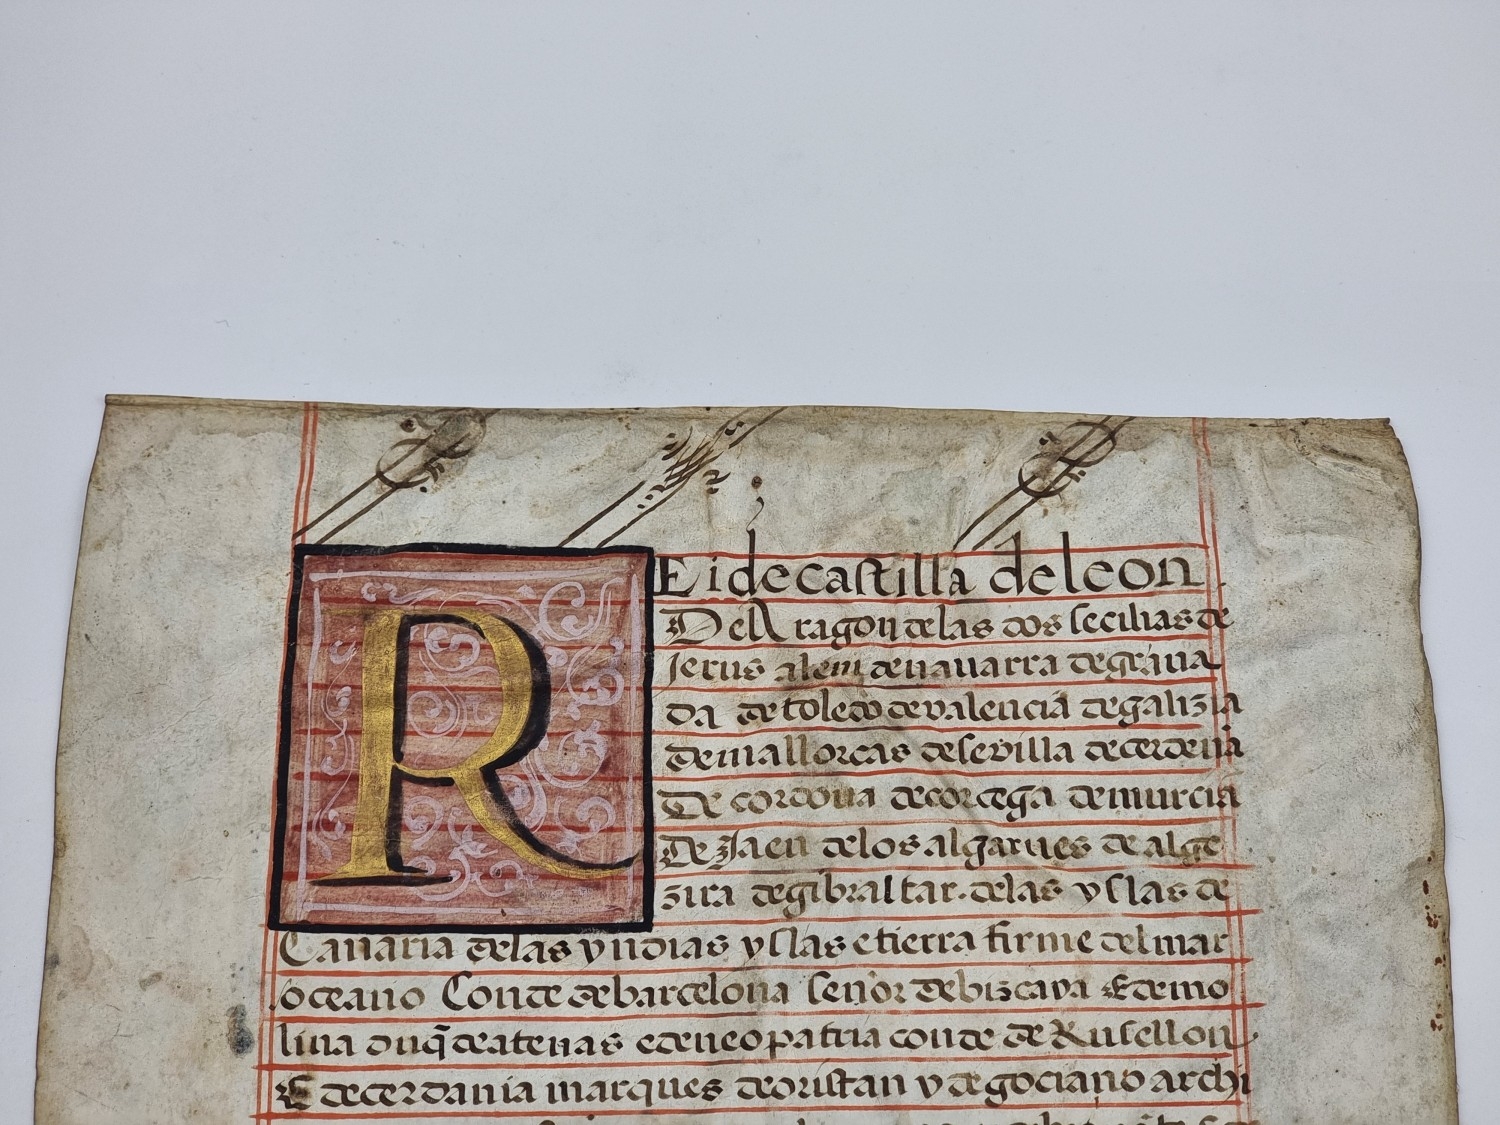 REi de castilla de leon
Del Aragon de las dos secilias de
Jerus alem de navarra de grana
da de toledo de valencia de galizia
de mallorcas de sevilla de cerdeña
De cordova de corcega de murcia
De Jaen de los algarues de alge
zira de gibraltar. de las yslas de
Canaria de las yndias yslas e tierra firme del mar
oceano Conde de barcelona señor de bizcaya E de mo
lina duq̃ de atenas e de neopatria conde de Rusellon
E de cerdania marques de oristan y de gociano archi